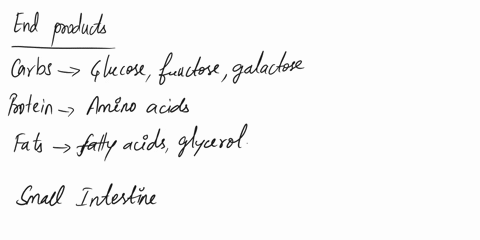 End products
Carbs → Glucose, fructose, galactose
Protein → Amino acids
Fats → fatty acids, glycerol
Small Intestine